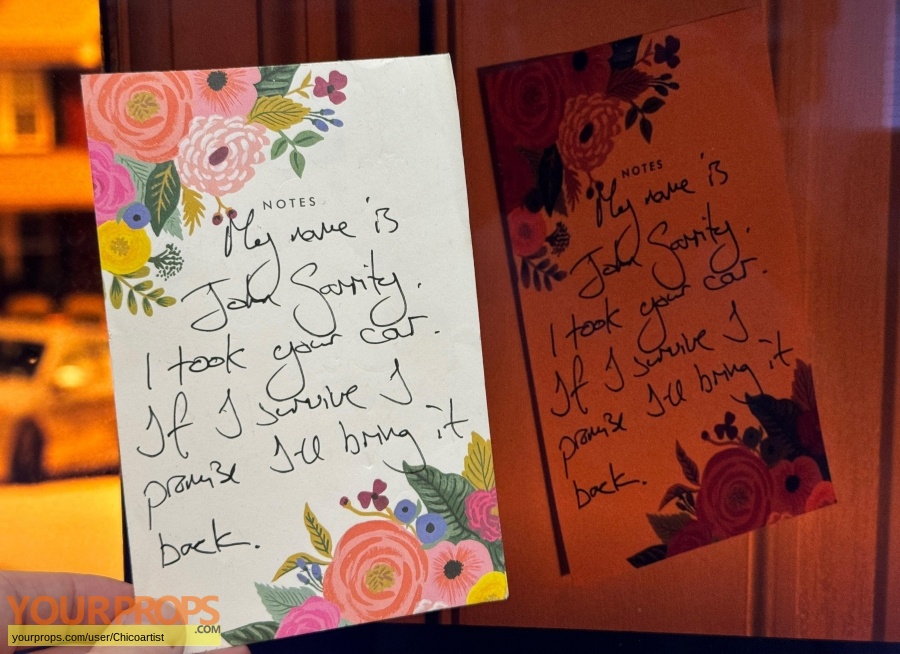 NOTES
My name is
John Garrity.
I took your car.
If I survive I
promise I'll bring it
back.
NOTES
My name is
John Garrity.
I took your car.
If I survive I
promise I'll bring it
back.
YOURPROPS
.COM
yourprops.com/user/Chicoartist